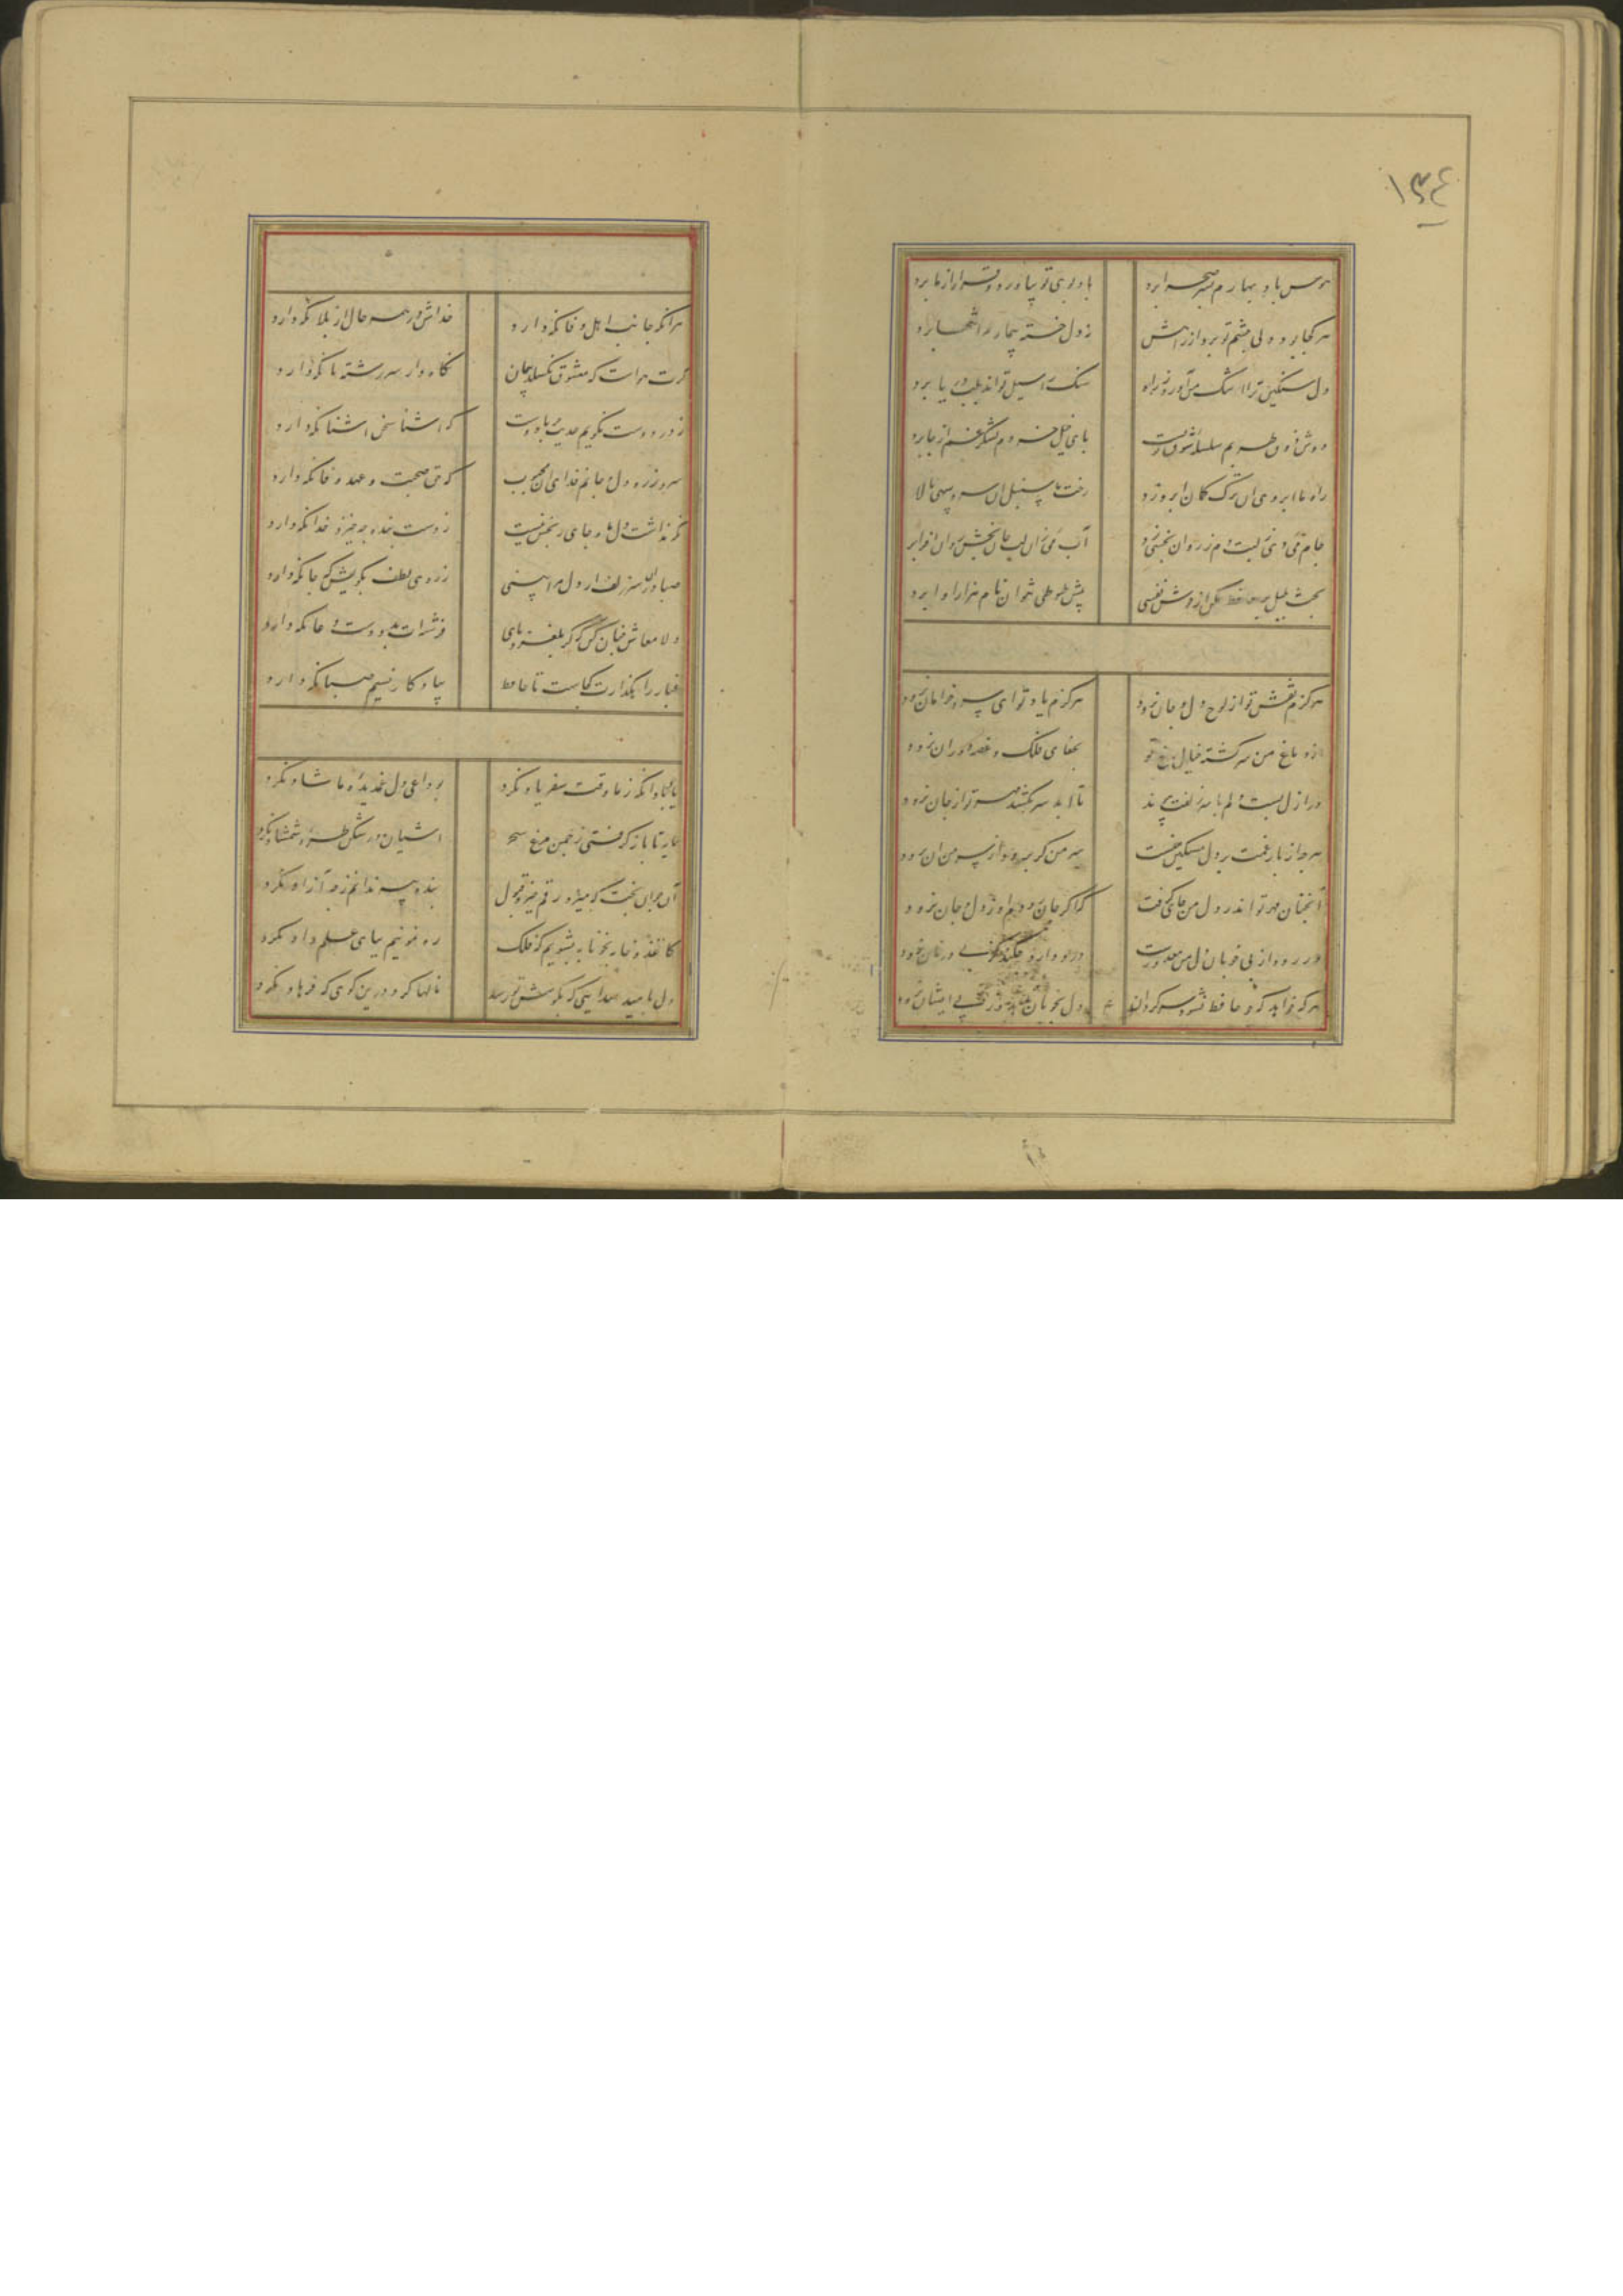 ۱۳۴
هوس باد بهارم بسر صحرا برد
باد بوی تو بیاورد و قرار از ما برد
هر کجا بود دلی چشم تو برد از راهش
نه دل خسته بیمار مرا تنها برد
دل سنگین ترا اشک من آورد براه
سنک را سیل تواند بلب دریا برد
دوش ذوق طربم سلسله شوق تو بست
پای خیل خردم لشکر غم از جا برد
راه ما ابروی آن ترک کمان ابرو زد
رخت ما سنبل آن سرو سهی بالا
جام می دی ز لبت دم ز روان بخشی زد
آب می زان لب جان بخش روان افزا برد
بحث بلبل بر حافظ مکن از خوش نفسی
پیش طوطی نتوان نام هزار آوا برد
هرگزم نقش تو از لوح دل و جان نرود
هرگزم یاد تو ای سرو خرامان نرود
از دماغ من سرگشته خیال رخ تو
بجفای فلک و غصه دوران نرود
در ازل بست دلم با سر زلفت پیوند
تا ابد سر نکشد مهر تو از جان نرود
هر چه از بار غمت بر دل مسکین منست
سر من گر برود از سر من آن نرود
آنچنان مهر تو اندر دل من جای گرفت
که اگر جان برود مهر تو از دل و جان نرود
گر رود از پی خوبان دل من معذورست
درد دارد چکند کز پی درمان نرود
هر که خواهد که چو حافظ نشود سرگردان
دل بخوبان ندهد وز پی ایشان نرود
هر آنکه جانب اهل وفا نکه دارد
خداش در همه حال از بلا نکه دارد
گرت هواست که معشوق نکسلد پیمان
نکاه دار سر رشته تا نکه دارد
ز درد دوست نکویم حدیث جز با دوست
که آشنا سخن آشنا نکه دارد
سر و زر و دل و جانم فدای آن محبوب
که حق صحبت و عهد وفا نکه دارد
نکه نداشت دل ما و جای رنجش نیست
ز دست بنده چه خیزد خدا نکه دارد
صبا در آن سر زلف ار دل مرا بینی
ز روی لطف بکویش که جا نکه دارد
دلا معاش چنان کن که گر بلغزد پای
فرشته ات بدو دست دعا نکه دارد
غبار راهکذارت کجاست تا حافظ
بیادکار نسیم صبا نکه دارد
یاد باد آنکه ز ما وقت سفر یاد نکرد
بوداعی دل غمدیده ما شاد نکرد
سایه تا باز گرفتی ز چمن مرغ سحر
آشیان در شکن طره شمشاد نکرد
آن جوان بخت که میزد رقم خیر و قبول
بنده پیر ندانم ز چه آزاد نکرد
کاغذین جامه بخونابه بشویم که فلک
ره نمونیم بپای علم داد نکرد
دل بامید صدایی که بکوش تو رسد
نالها کرد درین کوی که فرهاد نکرد